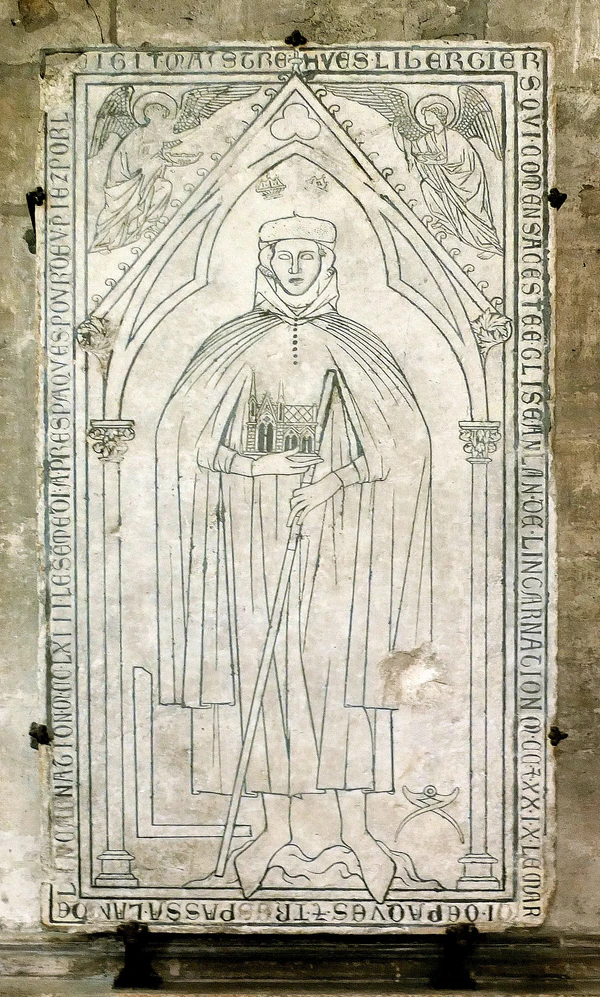 CI GIT MAISTRE + HVES LIBERGIER
S QVI COMENSA CESTE EGLISE AN LAN DE LINCARNATION M CC 7 XX IX LE MAR
DI DE PAQVES 7 TRESPASSA LAN DE
LINCARNATION M CC LXIII LE SEMEDI APRES PAQVES POVR DEV PIEZ POR L